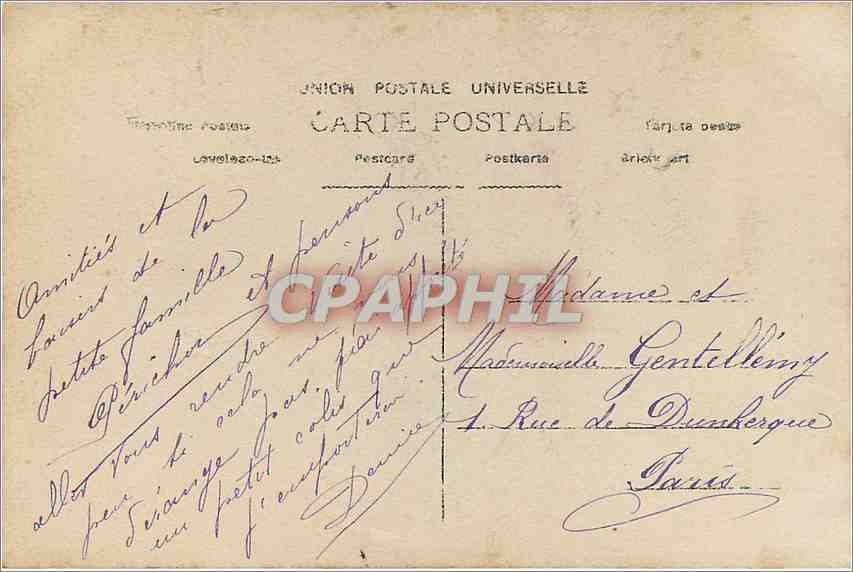 UNION POSTALE UNIVERSELLE
CARTE POSTALE
Tarjeta postal
Levelezo-lap Postcard Postkarte Brief
Amitiés et
baisers de la
petite famille
Périchon et pensons
aller vous rendre visite d'ici
peu si cela ne vous
dérange pas, pour
un petit colis que
j'emporterai.
Denise
CPAPHIL
Madame et
Mademoiselle Gentellémy
1. Rue de Dunkerque
Paris